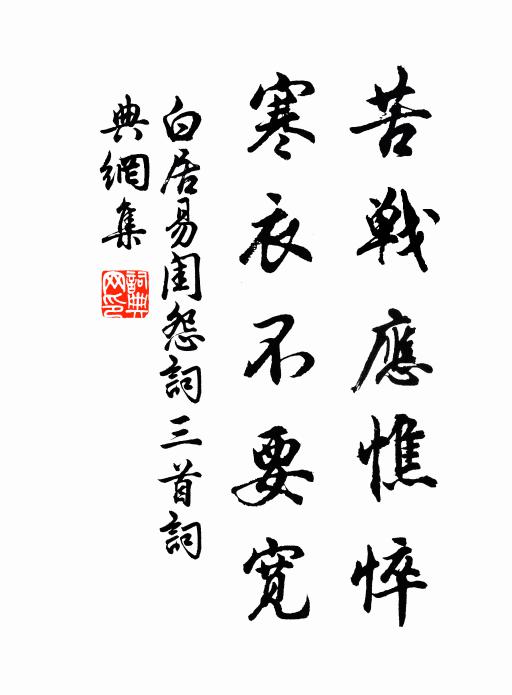 苦戰應憔悴
寒衣不要寬
白居易閨怨詞三首詞
典網集
詞典
网印